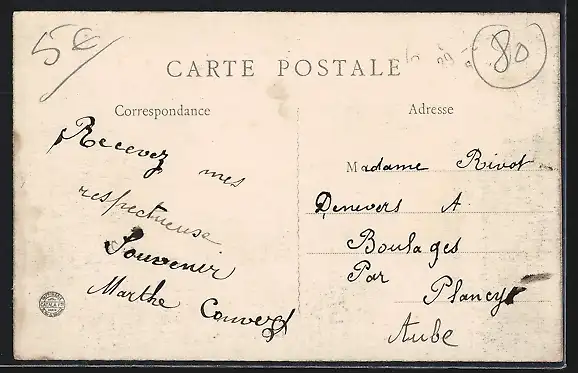 5€
80
CARTE POSTALE
Correspondance
Adresse
Recevez mes
respectueuse
Souvenir
Marthe
Madame Rivot
Denevers A
Boulages
Par Plancy
Aube